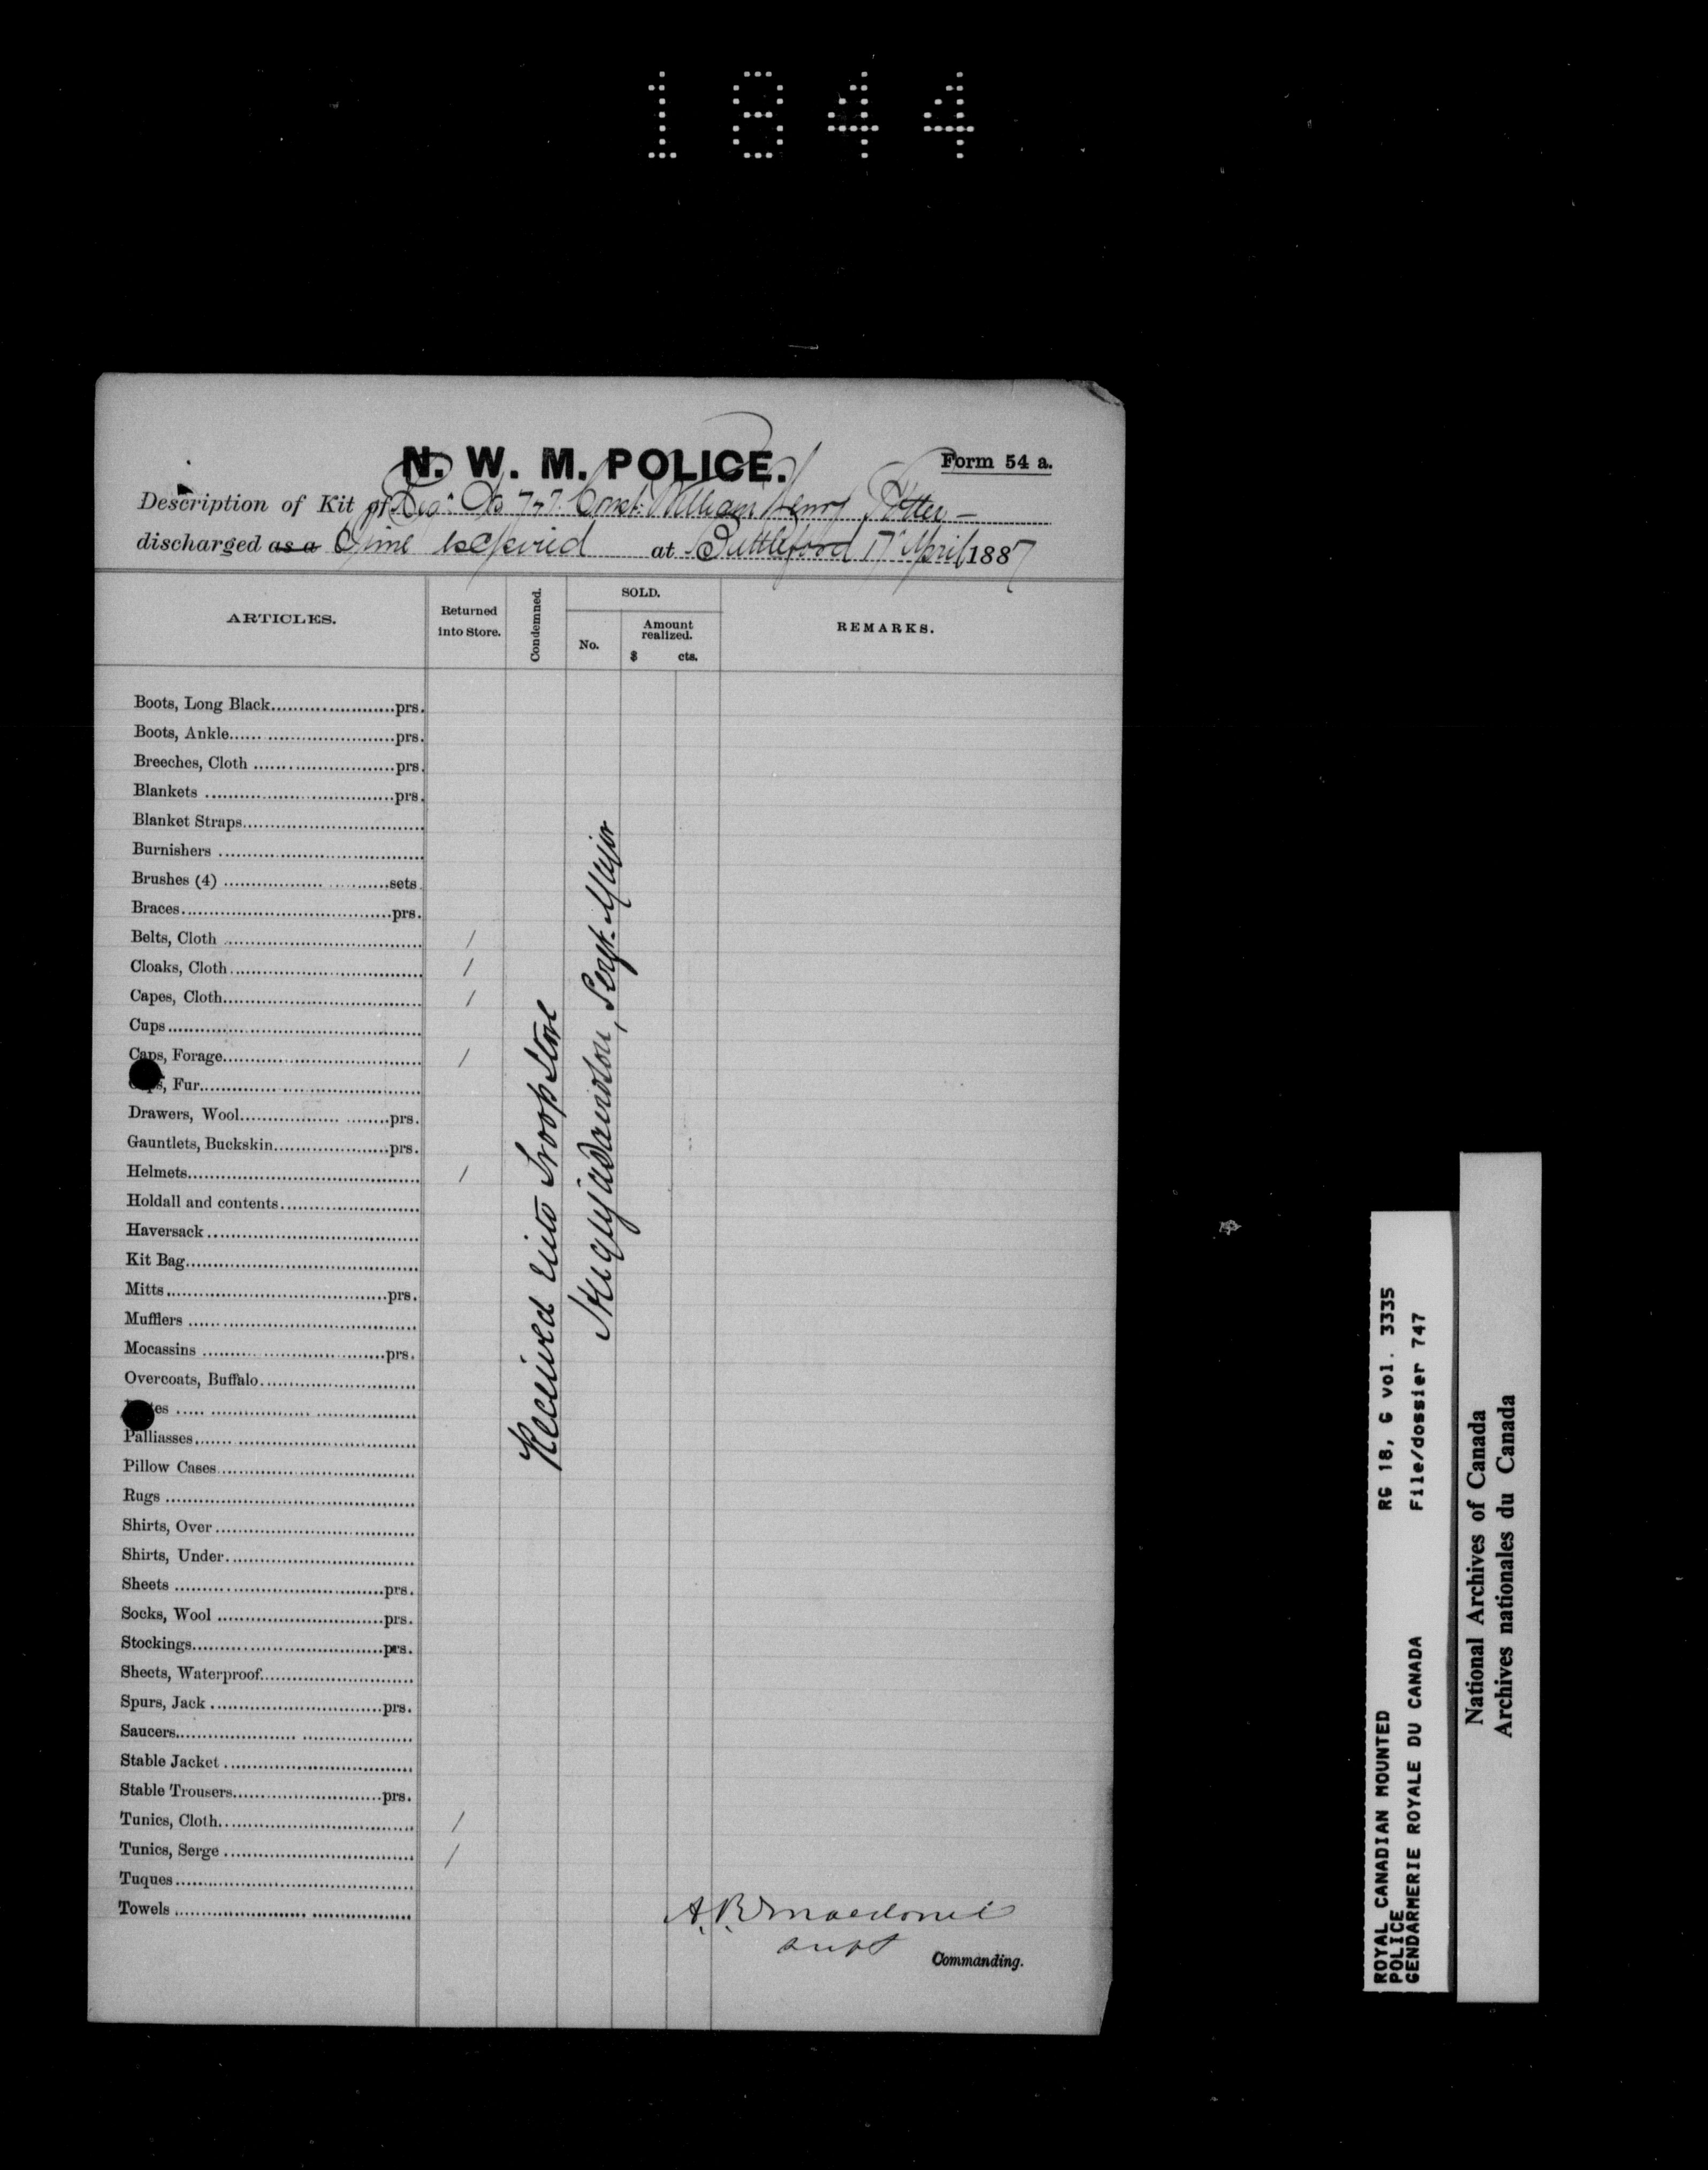 1844
N. W. M. POLICE.
Form 54 a.
Description of Kit of Reg. No 747 Const. William Henry Potter —
discharged as a Time expired at Battleford 17 April 1887
ARTICLES.
Returned into Store.
Condemned.
SOLD.
No.
Amount realized.
$ cts.
REMARKS.
Boots, Long Black prs.
Boots, Ankle prs.
Breeches, Cloth prs.
Blankets prs.
Blanket Straps
Burnishers
Brushes (4) sets
Braces prs.
Belts, Cloth 1
Cloaks, Cloth 1
Capes, Cloth 1
Cups
Caps, Forage 1
Caps, Fur
Drawers, Wool prs.
Gauntlets, Buckskin prs.
Helmets 1
Holdall and contents
Haversack
Kit Bag
Mitts prs.
Mufflers
Mocassins prs.
Overcoats, Buffalo
Plates
Palliasses
Pillow Cases
Rugs
Shirts, Over
Shirts, Under
Sheets prs.
Socks, Wool prs.
Stockings prs.
Sheets, Waterproof
Spurs, Jack prs.
Saucers
Stable Jacket
Stable Trousers prs.
Tunics, Cloth 1
Tunics, Serge 1
Tuques
Towels
Received into Troop Store
Sergt. Major
A. R. Macdonell
Supt
Commanding.
ROYAL CANADIAN MOUNTED RG 18, G vol. 3335
POLICE
GENDARMERIE ROYALE DU CANADA File/dossier 747
National Archives of Canada
Archives nationales du Canada